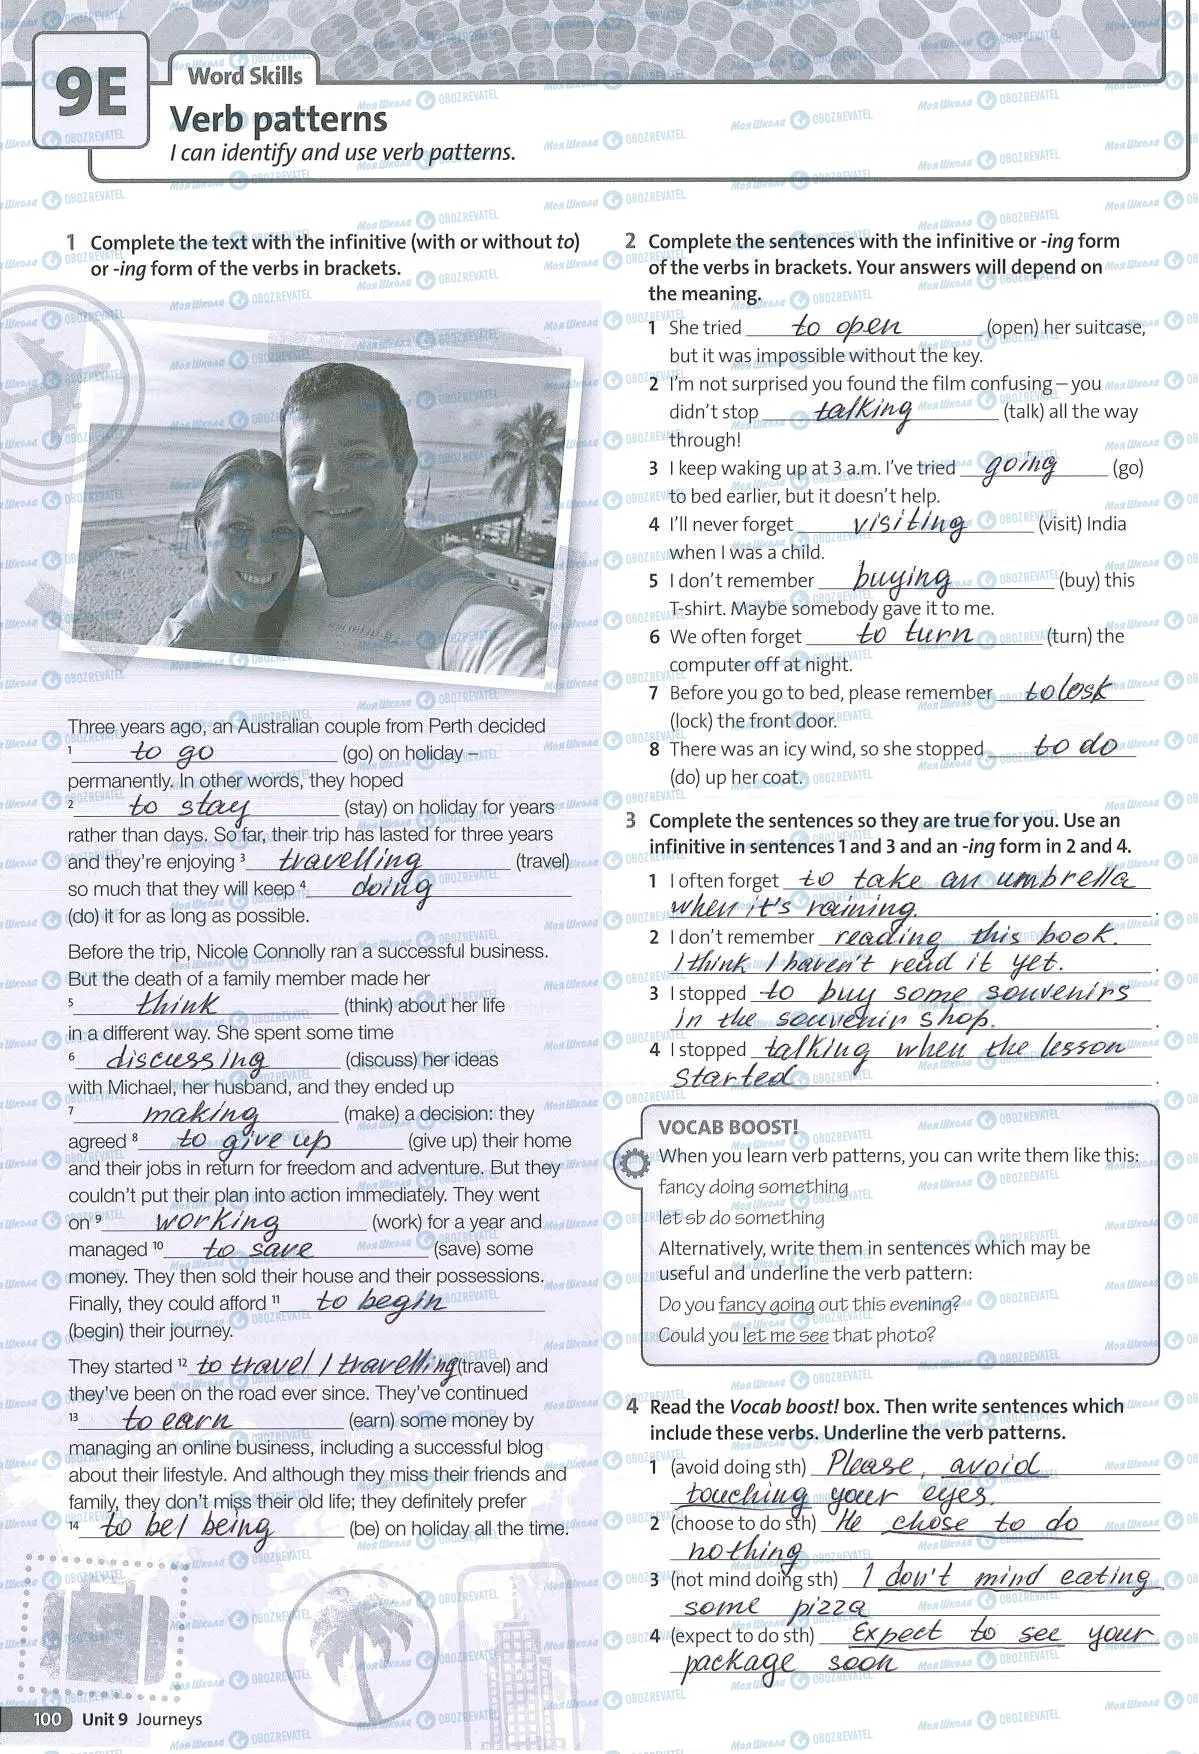 9E
Word Skills
Verb patterns
I can identify and use verb patterns.
1 Complete the text with the infinitive (with or without to)
or -ing form of the verbs in brackets.
Three years ago, an Australian couple from Perth decided
1 to go (go) on holiday –
permanently. In other words, they hoped
2 to stay (stay) on holiday for years
rather than days. So far, their trip has lasted for three years
and they're enjoying 3 travelling (travel)
so much that they will keep 4 doing
(do) it for as long as possible.
Before the trip, Nicole Connolly ran a successful business.
But the death of a family member made her
5 think (think) about her life
in a different way. She spent some time
6 discussing (discuss) her ideas
with Michael, her husband, and they ended up
7 making (make) a decision: they
agreed 8 to give up (give up) their home
and their jobs in return for freedom and adventure. But they
couldn't put their plan into action immediately. They went
on 9 working (work) for a year and
managed 10 to save (save) some
money. They then sold their house and their possessions.
Finally, they could afford 11 to begin
(begin) their journey.
They started 12 to travel / travelling (travel) and
they've been on the road ever since. They've continued
13 to earn (earn) some money by
managing an online business, including a successful blog
about their lifestyle. And although they miss their friends and
family, they don't miss their old life; they definitely prefer
14 to be / being (be) on holiday all the time.
2 Complete the sentences with the infinitive or -ing form
of the verbs in brackets. Your answers will depend on
the meaning.
1 She tried to open (open) her suitcase,
but it was impossible without the key.
2 I'm not surprised you found the film confusing – you
didn't stop talking (talk) all the way
through!
3 I keep waking up at 3 a.m. I've tried going (go)
to bed earlier, but it doesn't help.
4 I'll never forget visiting (visit) India
when I was a child.
5 I don't remember buying (buy) this
T-shirt. Maybe somebody gave it to me.
6 We often forget to turn (turn) the
computer off at night.
7 Before you go to bed, please remember to losk
(lock) the front door.
8 There was an icy wind, so she stopped to do
(do) up her coat.
3 Complete the sentences so they are true for you. Use an
infinitive in sentences 1 and 3 and an -ing form in 2 and 4.
1 I often forget to take an umbrella
when it's raining.
2 I don't remember reading this book.
I think I haven't read it yet.
3 I stopped to buy some souvenirs
in the souvenir shop.
4 I stopped talking when the lesson
started
VOCAB BOOST!
When you learn verb patterns, you can write them like this:
fancy doing something
let sb do something
Alternatively, write them in sentences which may be
useful and underline the verb pattern:
Do you fancy going out this evening?
Could you let me see that photo?
4 Read the Vocab boost! box. Then write sentences which
include these verbs. Underline the verb patterns.
1 (avoid doing sth) Please, avoid
touching your eyes.
2 (choose to do sth) He chose to do
nothing
3 (not mind doing sth) I don't mind eating
some pizza
4 (expect to do sth) Expect to see your
package soon
100 Unit 9 Journeys
Моя Школа OBOZREVATEL